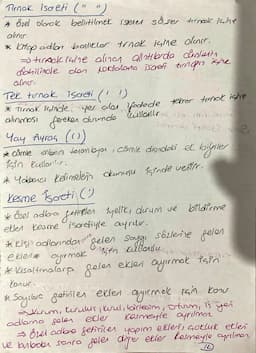 Tırnak İşareti (" ")
* Özel olarak belirtilmek istenen sözler tırnak içine
alınır.
* Kitap adları başlıklar tırnak içine alınır.
⇒ tırnak içine alınan alıntılarda cümlenin
dahilinde olan noktalama işareti tırnağın içine
alınır.
Tek tırnak işareti (' ')
* Tırnak içinde yer alan ifadede tekrar tırnak içine
alınması gereken durumda kullanılır.
Yay Ayraç ( )
* Cümle için kullanılır.
* Yabancı kelimelerin okunuşu içinde verilir.
Kesme İşareti (')
* Özel adlara getirilen iyelik, durum ve bildirme
ekleri kesme işaretiyle ayrılır.
* Kişi adlarından gelen saygı sözlerine gelen
ekleri ayırmak için kullanılır.
* Kısaltmalara gelen ekleri ayırmak için
konur.
* Sayılara getirilen ekleri ayırmak için konur
⇒ Kurum, kuruluş, kurul, birleşim, oturum, iş yeri
adlarına gelen ekler kesmeyle ayrılmaz.
⇒ Özel adlara getirilen yapım ekleri, çokluk ekleri
ve bunlardan sonra gelen diğer ekler kesmeyle ayrılmaz.